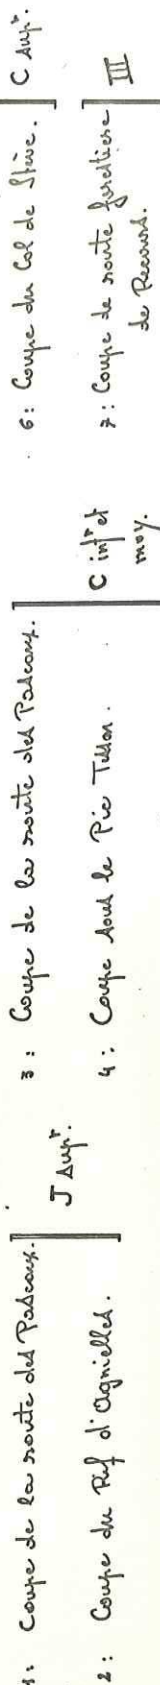 1: Coupe de la route des Pascaux.
2: Coupe du Rif d'Agnielles.
J Supr.
3: Coupe de la route des Pascaux.
4: Coupe sous le Pic
C infr et
moy.
6: Coupe du Col de
C Supr.
7: Coupe de route forestière
de Recours.
III